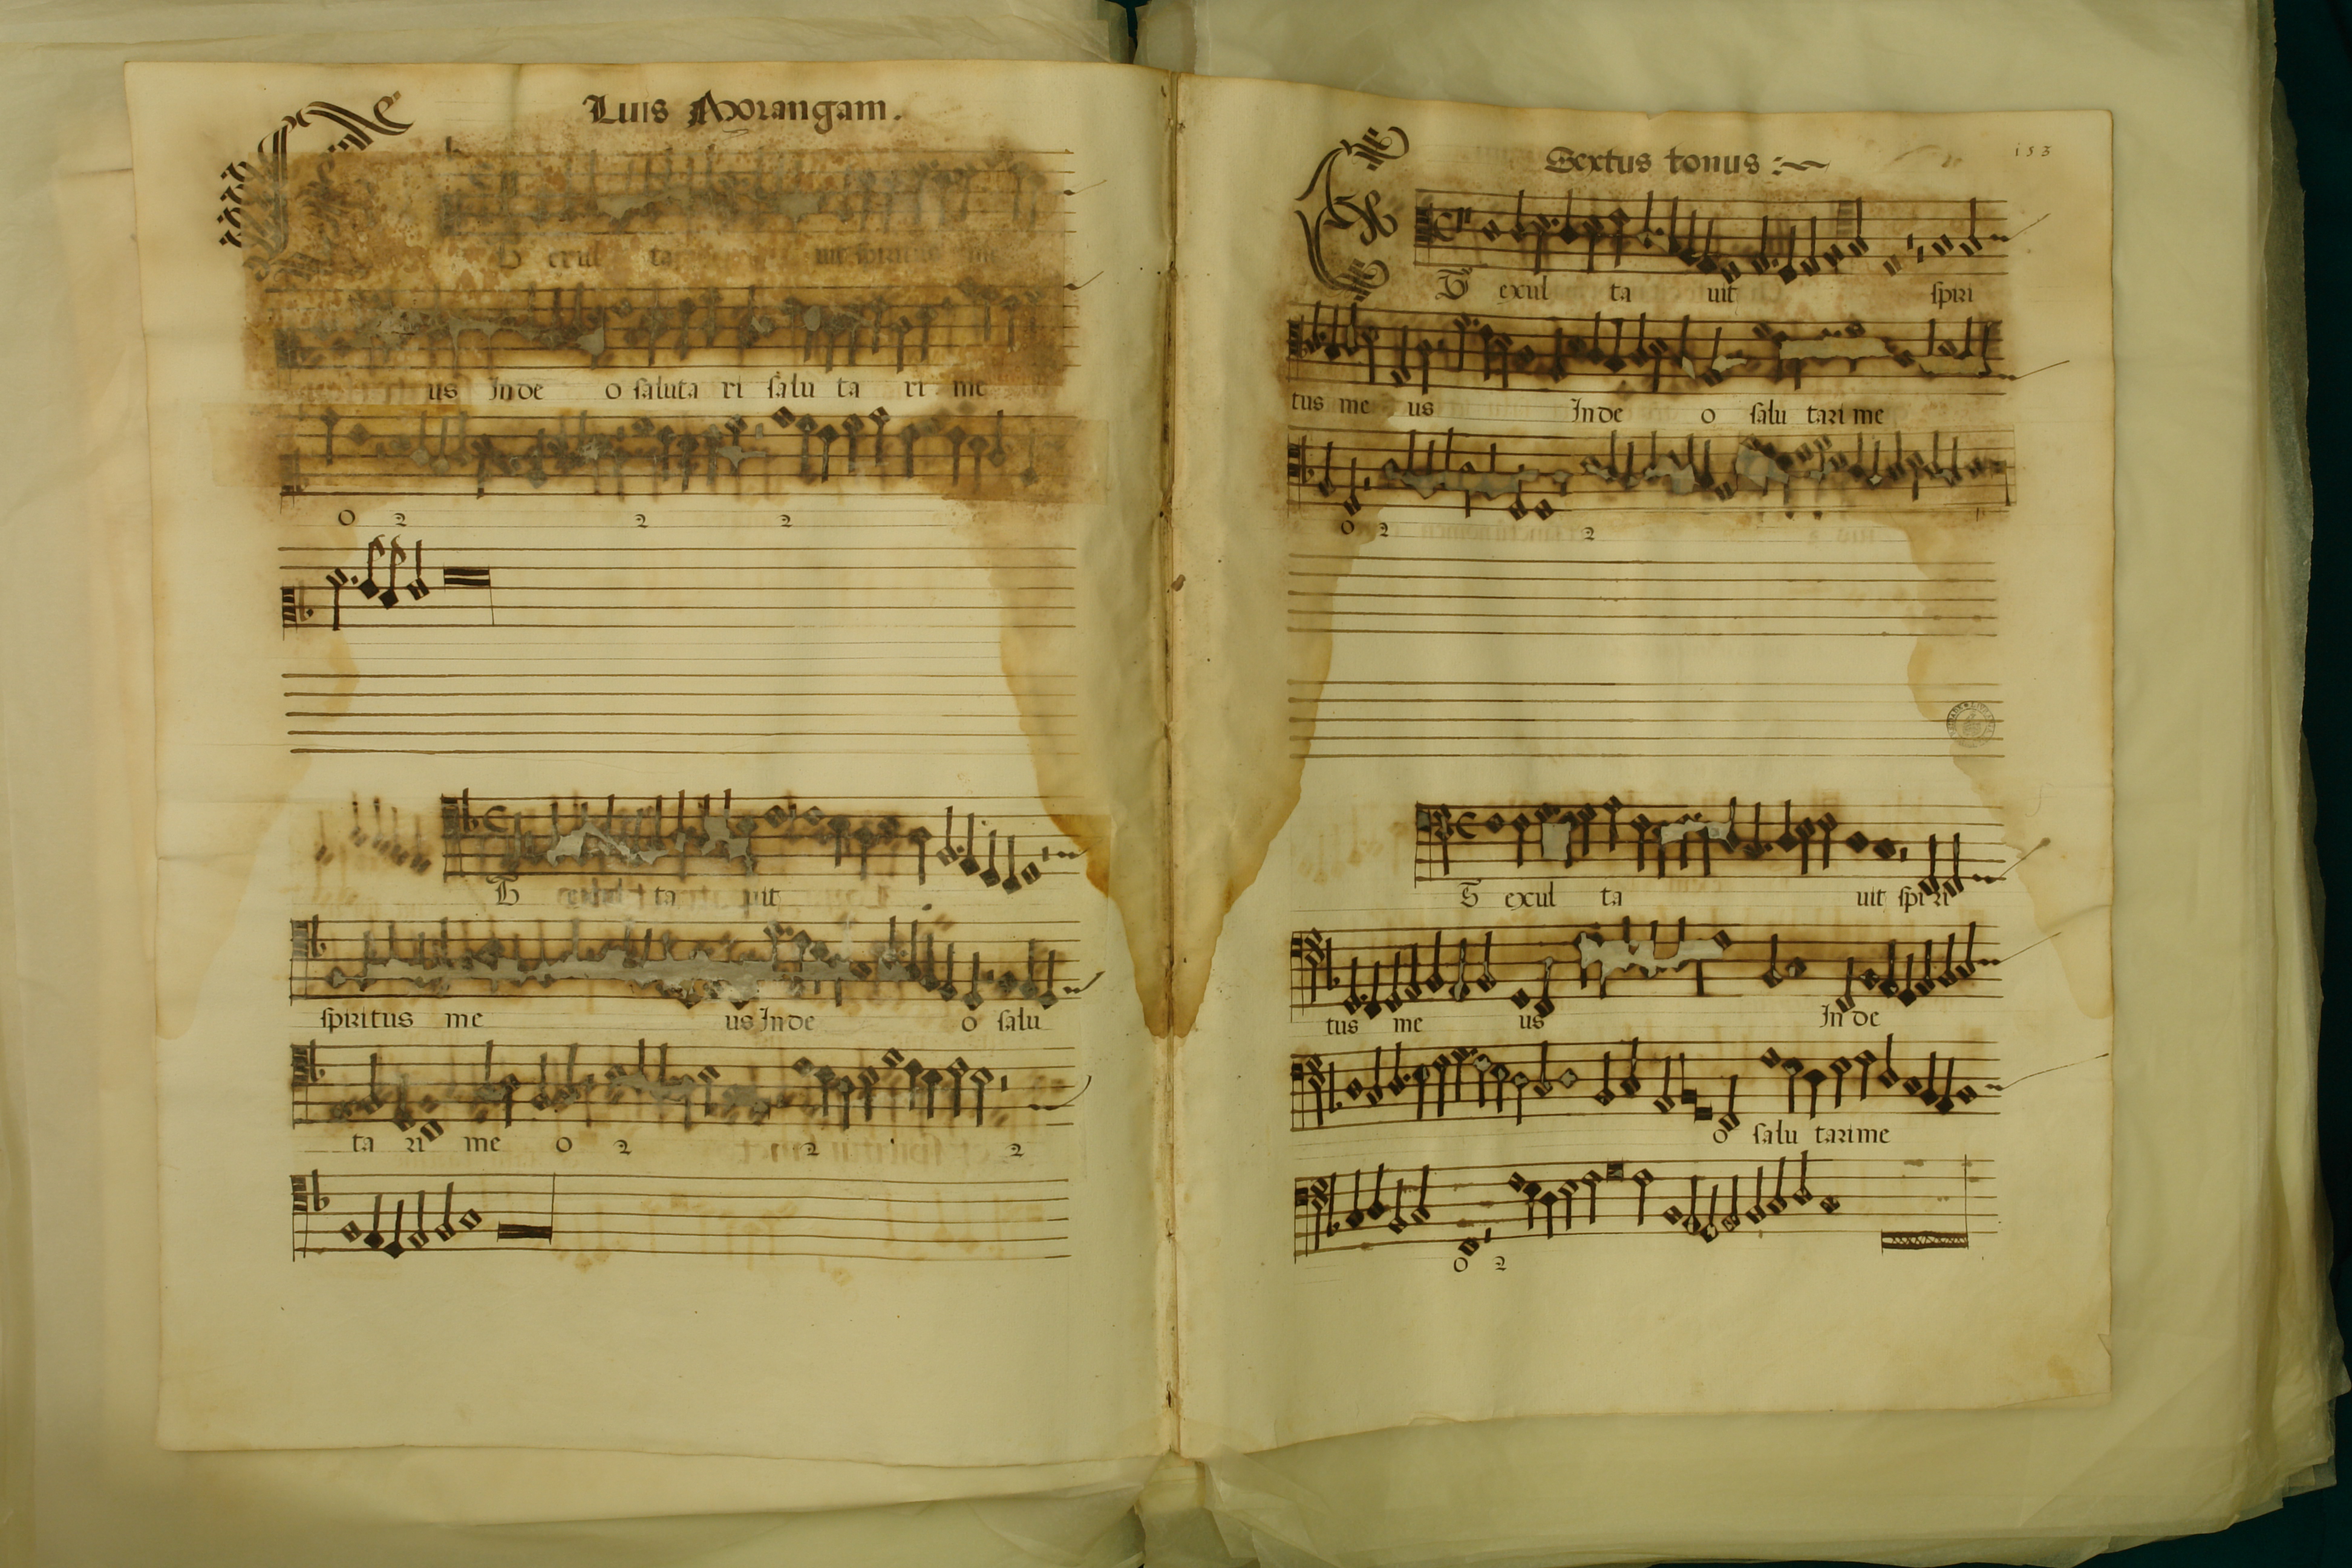 Luis Morangam.
Et exul ta uit spiritus me
us Inde o saluta ri salu ta ri me
o 2 2 2
Et exul ta uit
spiritus me us Inde o salu
ta ri me o 2 2 2
Sextus tonus :~
153
Et exul ta uit spiri
tus me us Inde o salu tari me
o 2 2
Et exul ta uit spi ri
tus me us Inde
o salu tari me
o 2